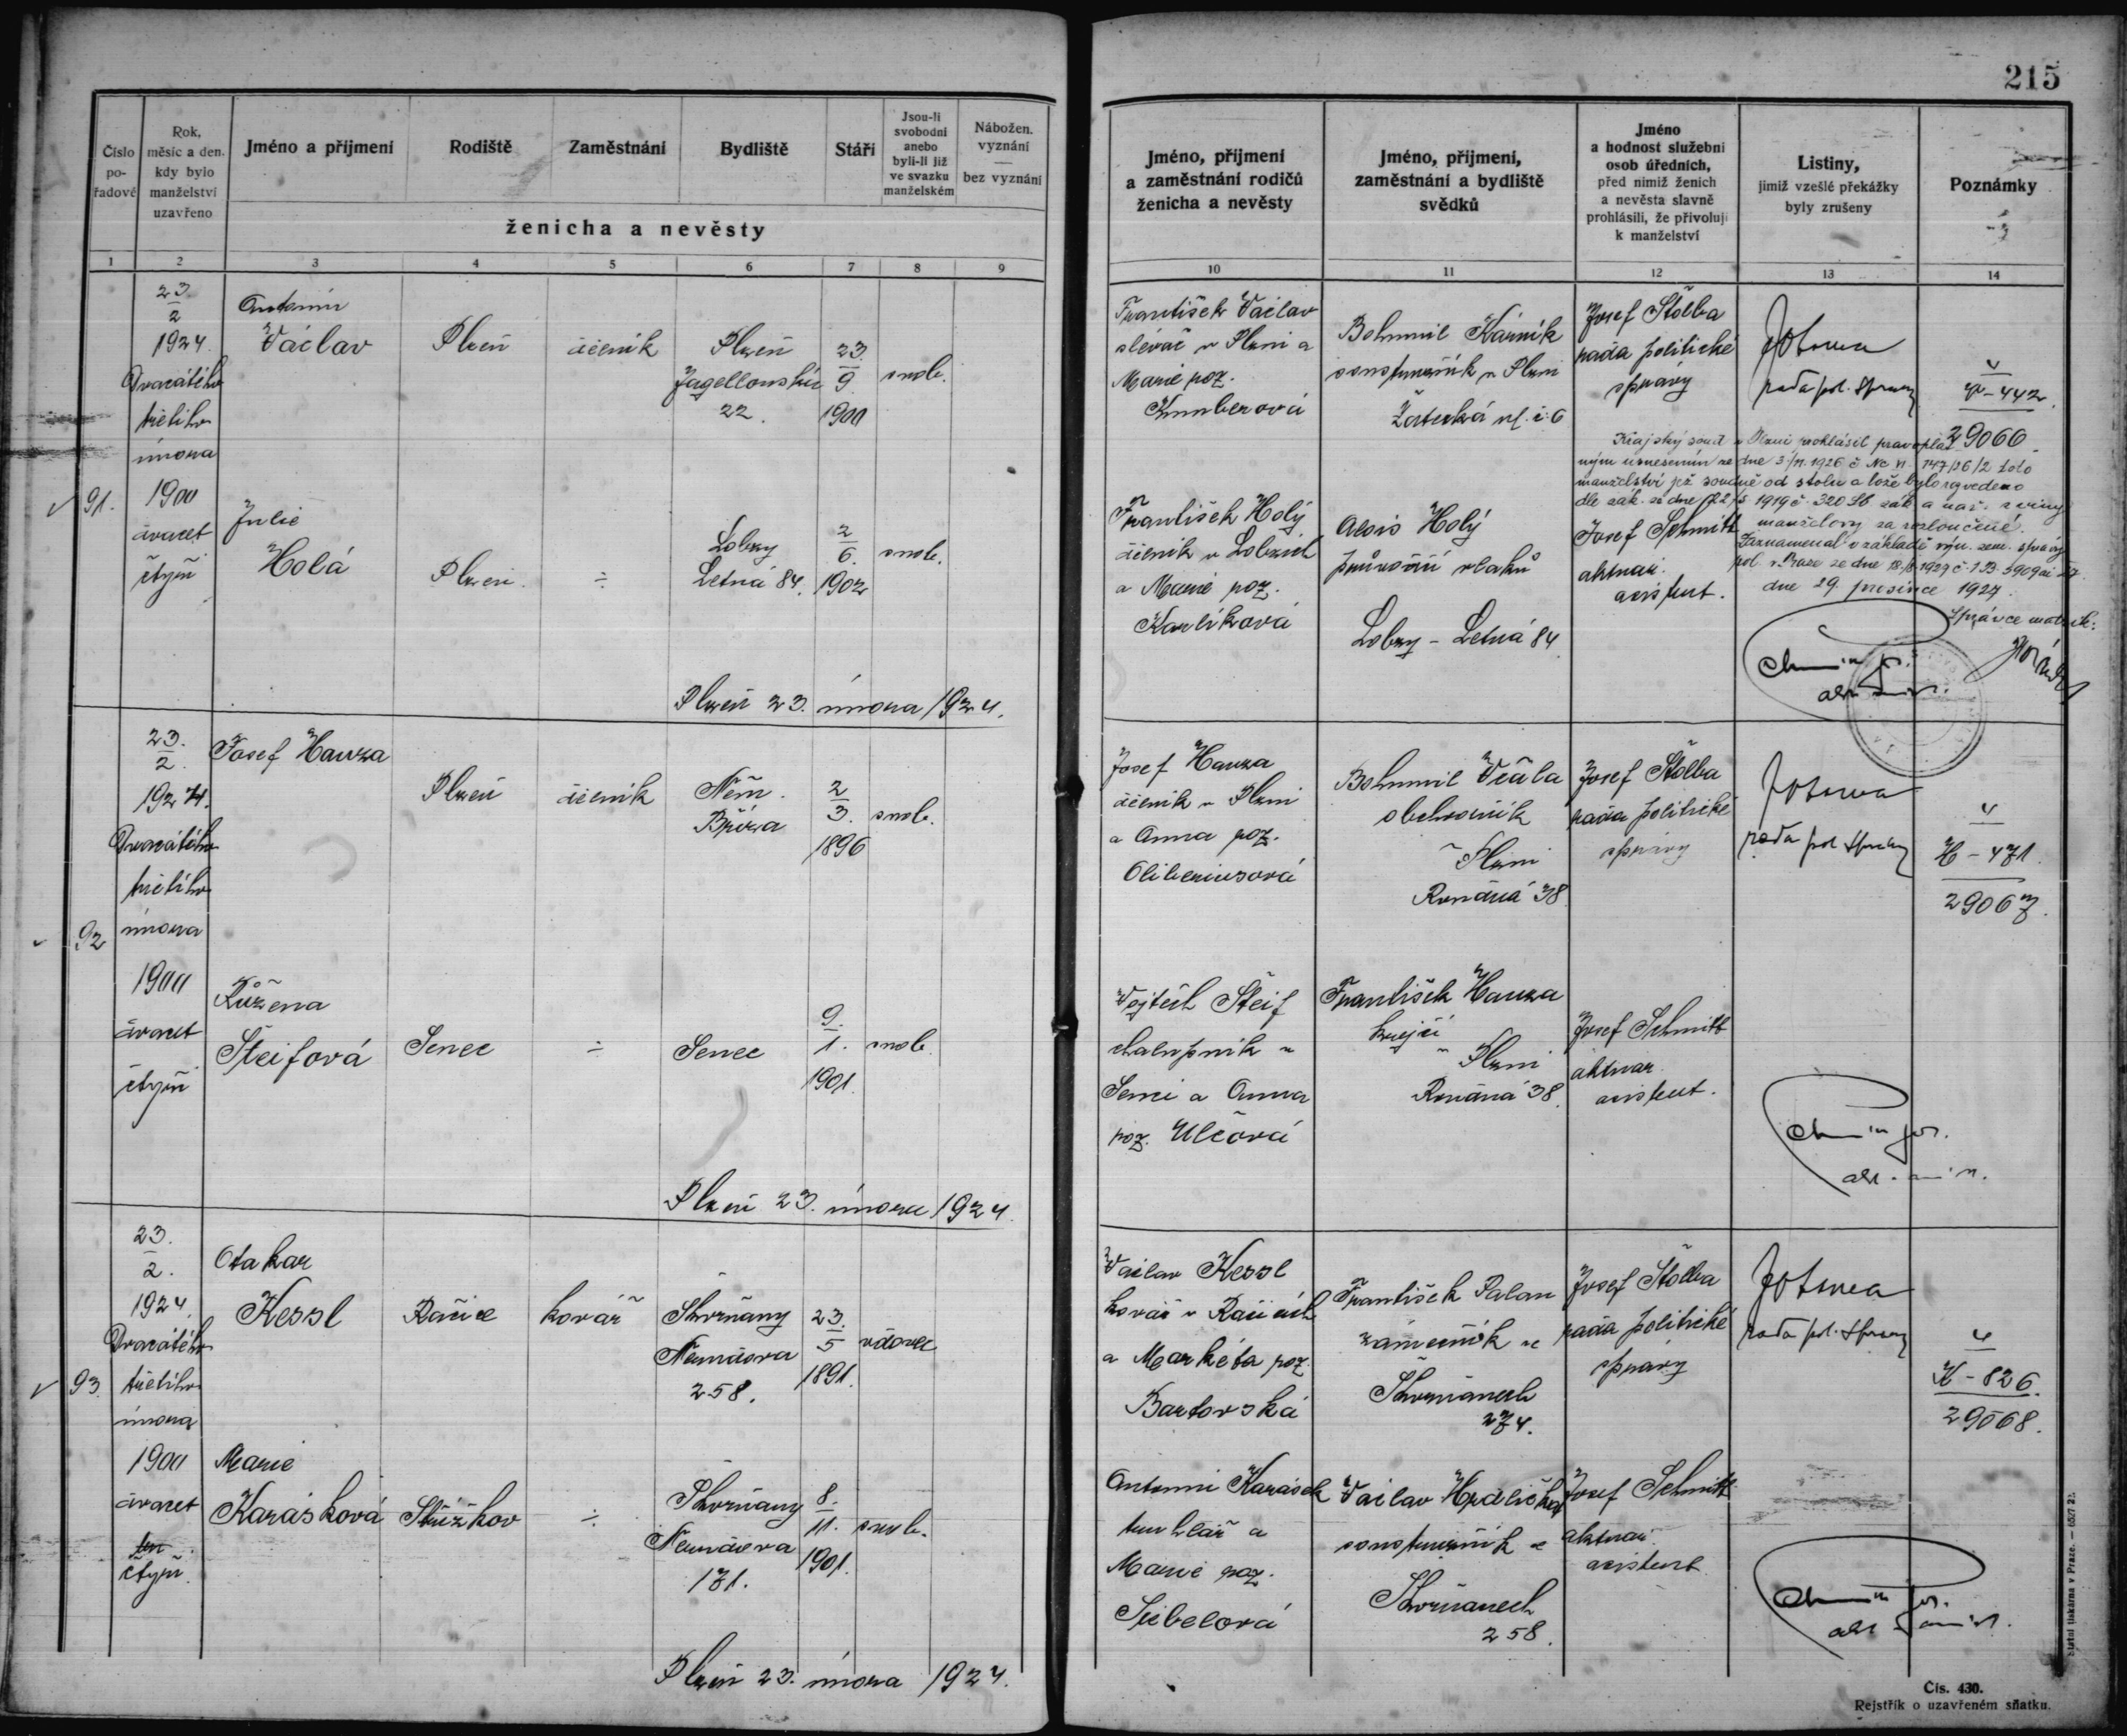 215
Číslo
po-
řadové
Rok,
měsíc a den,
kdy bylo
manželství
uzavřeno
Jméno a příjmení
Rodiště
Zaměstnání
Bydliště
Stáří
Jsou-li
svobodni
anebo
byli-li již
ve svazku
manželském
Nábožen.
vyznání
—
bez vyznání
ženicha a nevěsty
1 2 3 4 5 6 7 8 9
Jméno, příjmení
a zaměstnání rodičů
ženicha a nevěsty
Jméno, příjmení,
zaměstnání a bydliště
svědků
Jméno
a hodnost služební
osob úředních,
před nimiž ženich
a nevěsta slavně
prohlásili, že přivolují
k manželství
Listiny,
jimiž vzešlé překážky
byly zrušeny
Poznámky
10 11 12 13 14
91.
23.
2
1924.
Dvacátého
třetího
února
1900
dvacet
čtyři
Antonín
Václav
Plzeň
dělník
Plzeň
Jagellonská
22.
23.
9
1900
svob.
Julie
Holá
Plzeň
÷
Lobzy
Letná 84.
2
6.
1902
svob.
Plzeň 23. února 1924.
František Václav
slévač v Plzni a
Marie roz.
Bohumil Kárník
soustružník v Plzni
Žatecká ul. č. 6
Josef Štolba
rada politické
správy
rada pol. správy
V
V-442.
29066
Krajský soud v Plzni prohlásil pravoplat-
ným usnesením ze dne
manželství jež soudně od stolu a lože bylo rozvedeno
dle zák. ze dne 22/5 1919 č. 320 Sb. zák. a nař. z viny
manželovy za rozloučené.
Zaznamenal v základě výn. zem. správy
pol. v Praze ze dne
dne 29. prosince 1927.
Správce matrik:
František Holý
dělník v Lobzích
a Marie roz.
Karlíková
Alois Holý
průvodčí vlaků
Lobzy - Letná 84
Josef Schmitt
aktuár.
asistent.
92
23.
2.
1924.
Dvacátého
třetího
února
1900
dvacet
čtyři
Josef Hauza
Plzeň
dělník
Něm.
Bříza
2
3.
1896
svob.
Růžena
Šteifová
Senec
÷
Senec
9.
1.
1901
svob.
Plzeň 23. února 1924.
Josef Hauza
dělník v Plzni
a Anna roz.
Oliberiusová
Bohumil Včala
obchodník
v Plzni
38
Josef Štolba
rada politické
správy
rada pol. správy
V
H-471.
29067.
Vojtěch Šteif
chalupník v
Senci a Anna
roz. Ulčová
František Hauza
krejčí
v Plzni
38.
Josef Schmitt
aktuár.
asistent.
93.
23.
2.
1924.
Dvacátého
třetího
února
1900
dvacet
čtyři
Otakar
Kessl
Račice
kovář
Skvrňany
Nerudova
258.
23.
5
1891.
vdovec
Marie
Karásková
Střížkov
÷
Skvrňany
Nerudova
171.
8.
11.
1901.
svob.
Plzeň 23. února 1924.
Václav Kessl
kovář v Račicích
a Markéta roz.
Bartovská
František Palan
zámečník ve
Skvrňanech
274.
Josef Štolba
rada politické
správy
rada pol. správy
V
K-826.
29068.
Antonín Karásek
truhlář a
Marie roz.
Siebelová
Václav Hrdlička
soustružník ve
Skvrňanech
258.
Josef Schmitt
aktuár.
asistent
Státní tiskárna v Praze.
Čís. 430.
Rejstřík o uzavřeném sňatku.